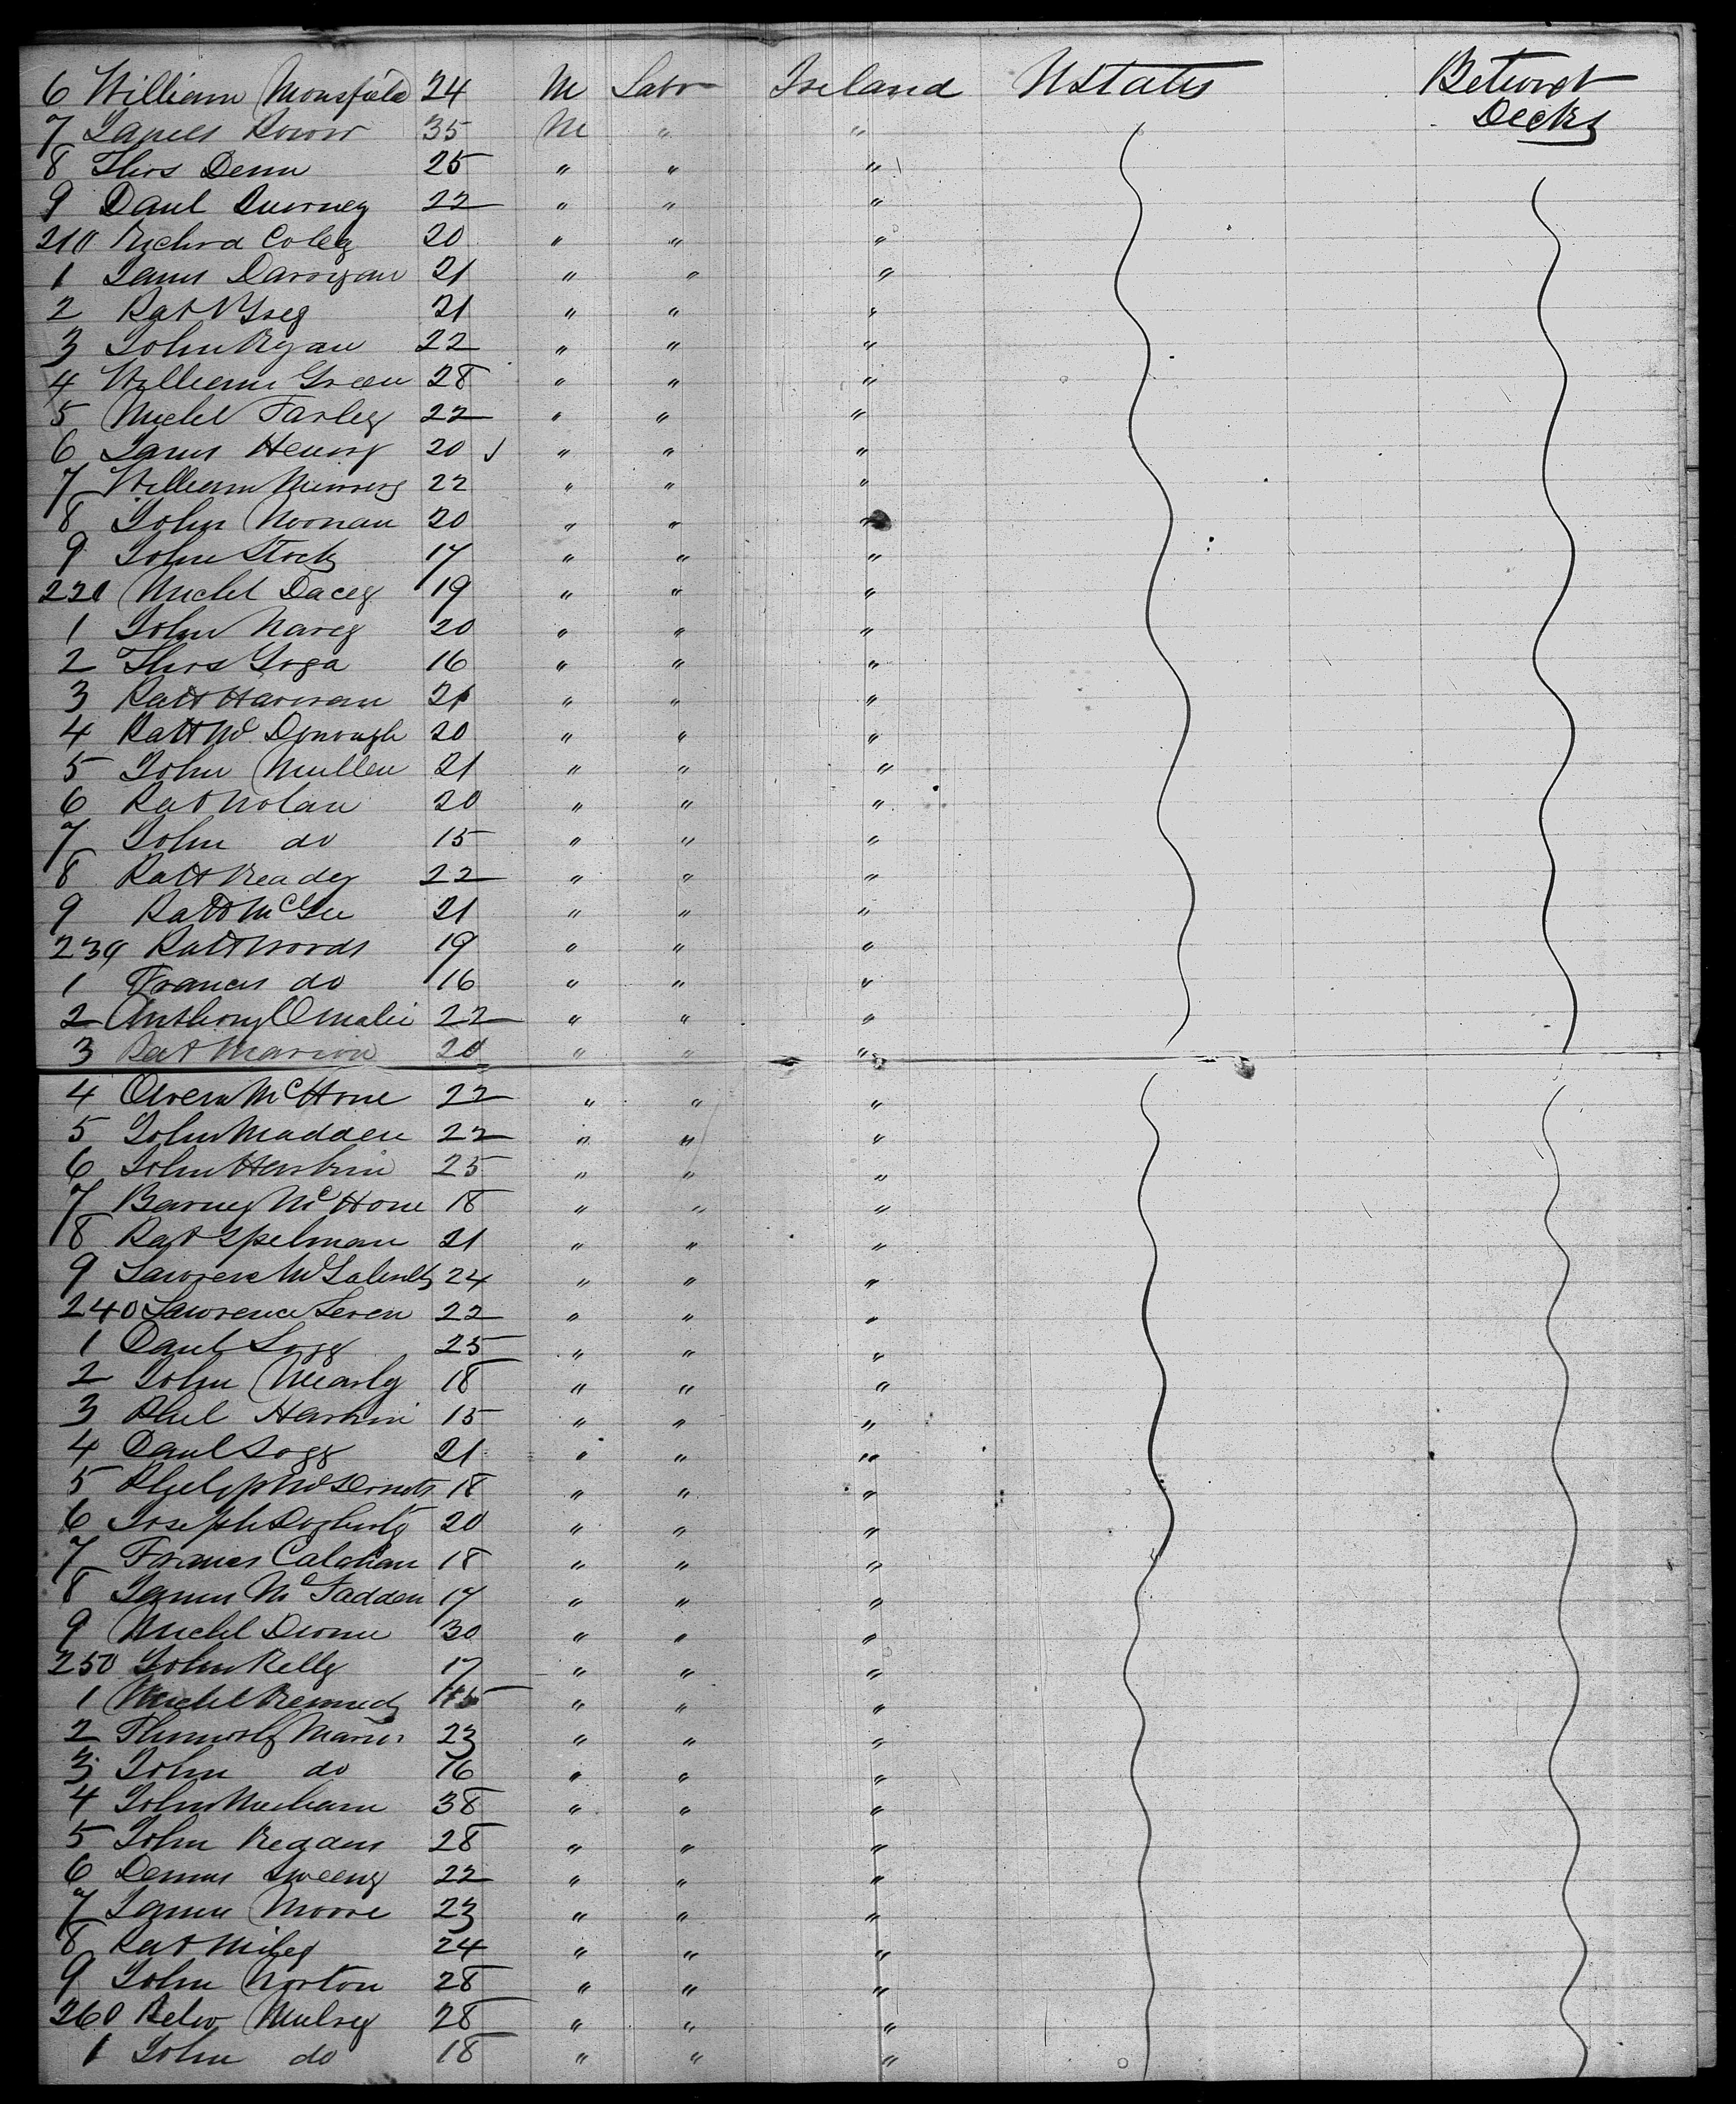 6 William Monsfield 24 M Labr Ireland UStates Betwixt
Decks
7 James Power 35 M " "
8 Thos Denn 25 " " "
9 Danl Querney 22 " " "
210 Richard Coley 20 " " "
1 James Darrigan 21 " " "
2 Pat 21 " " "
3 John Ryan 22 " " "
4 William Green 28 " " "
5 Michl Farley 22 " " "
6 James Henery 20 " " "
7 William 22 " " "
8 John Noonan 20 " " "
9 John Stock 17 " " "
220 Michl Dacey 19 " " "
1 John Narey 20 " " "
2 Thos Goga 16 " " "
3 Patt Hannan 21 " " "
4 Patt Mc Donough 20 " " "
5 John Mullen 21 " " "
6 Pat Nolan 20 " " "
7 John do 15 " " "
8 Patt Ready 22 " " "
9 Patt McGee 21 " " "
230 Patt Woods 19 " " "
1 Francis do 16 " " "
2 Anthony Omalie 22 " " "
3 Pat Marion 20 " " "
4 Owen McHone 22 " " "
5 John Madden 22 " " "
6 John Harkin 25 " " "
7 Barney McHone 18 " " "
8 Pat Spelman 21 " " "
9 Lawrence 24 " " "
240 Lawrence Leren 22 " " "
1 Danl Logg 25 " " "
2 John Mearly 18 " " "
3 Phil Harkin 15 " " "
4 Danl Logg 21 " " "
5 18 " " "
6 Joseph Dogherty 20 " " "
7 Frances Calahan 18 " " "
8 James McFadden 17 " " "
9 Michl 30 " " "
250 John Kelly 17 " " "
1 Michl Kennedy 15 " " "
2 23 " " "
3 John do 16 " " "
4 John Meehan 38 " " "
5 John Regans 28 " " "
6 Dennis Sweeny 22 " " "
7 James Moore 23 " " "
8 Pat 24 " " "
9 John Norton 28 " " "
260 Peter Mulrey 28 " " "
1 John do 18 " " "